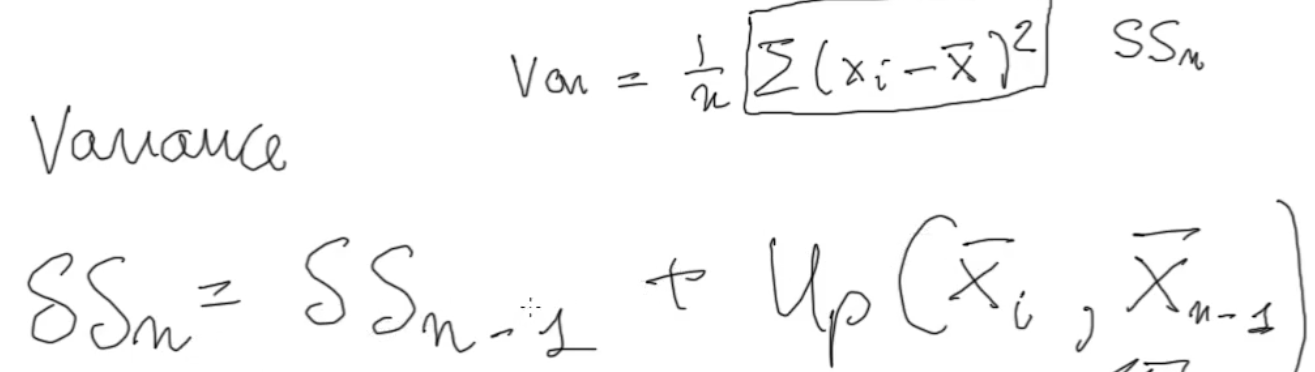 Var = 1/n Σ(xᵢ - x̄)² SSₙ
Variance
SSₙ = SSₙ₋₁ + Up(x̄ᵢ, x̄ₙ₋₁)